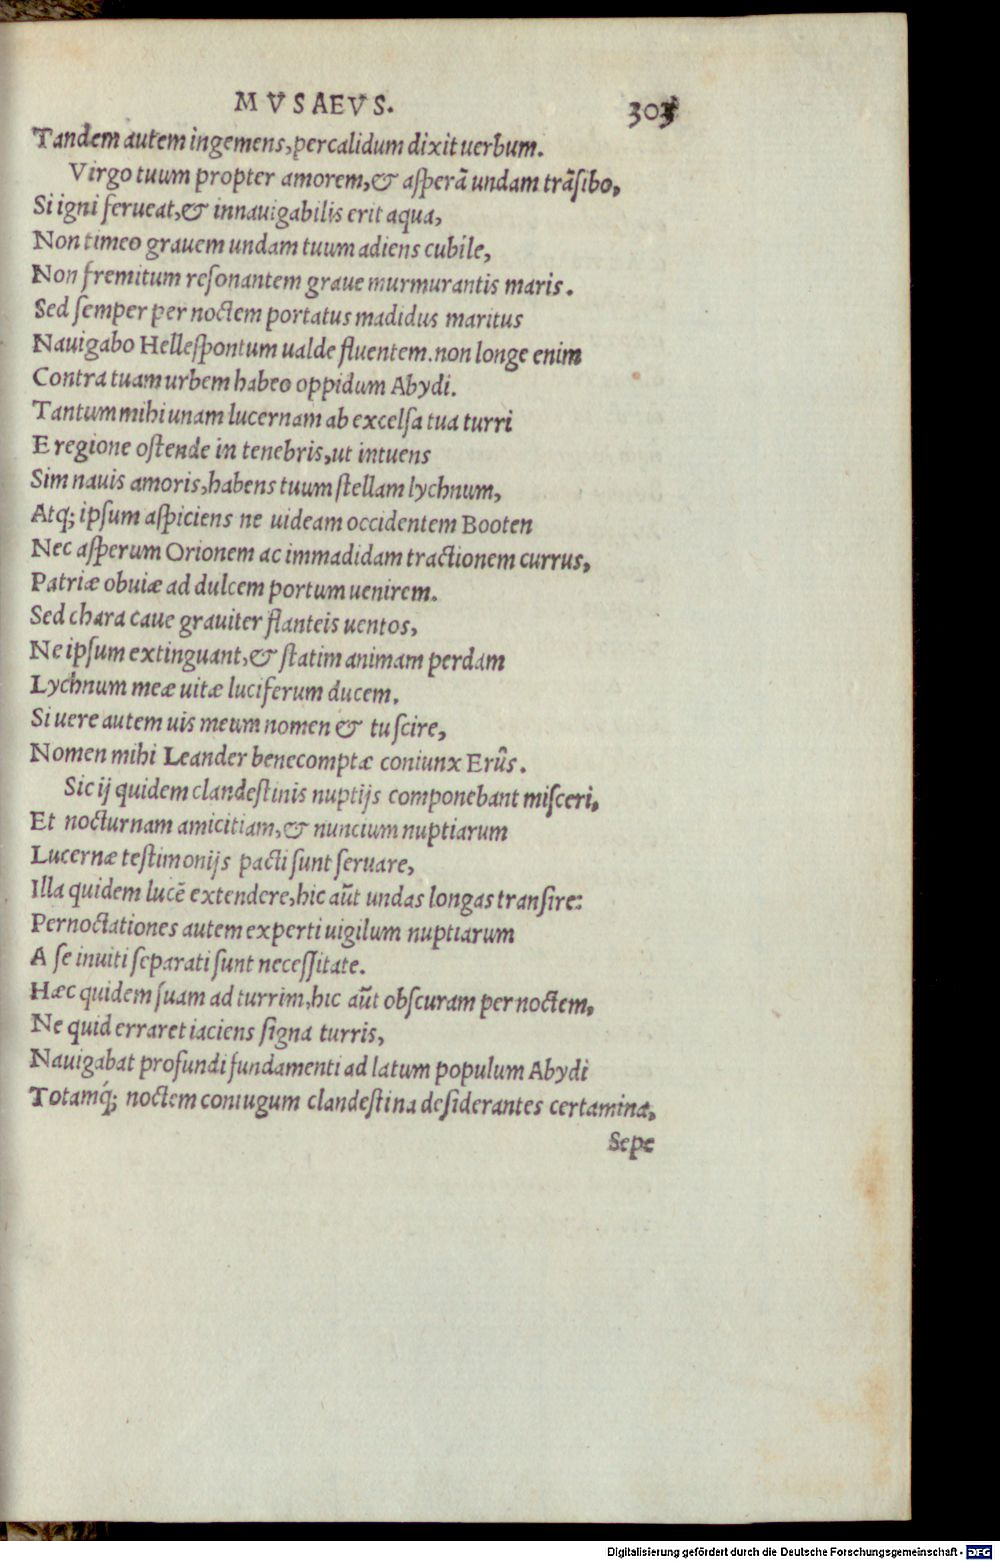 MVSAEVS. 303
Tandem autem ingemens, percalidum dixit uerbum.
Virgo tuum propter amorem, & asperã undam trãsibo,
Si igni ferueat, & innauigabilis erit aqua,
Non timeo grauem undam tuum adiens cubile,
Non fremitum resonantem graue murmurantis maris.
Sed semper per noctem portatus madidus maritus
Nauigabo Hellespontum ualde fluentem. non longe enim
Contra tuam urbem habeo oppidum Abydi.
Tantum mihi unam lucernam ab excelsa tua turri
E regione ostende in tenebris, ut intuens
Sim nauis amoris, habens tuum stellam lychnum,
Atq; ipsum aspiciens ne uideam occidentem Booten
Nec asperum Orionem ac immadidam tractionem currus,
Patriæ obuiæ ad dulcem portum uenirem.
Sed chara caue grauiter flanteis uentos,
Ne ipsum extinguant, & statim animam perdam
Lychnum meæ uitæ luciferum ducem.
Si uere autem uis meum nomen & tu scire,
Nomen mihi Leander benecomptæ coniunx Erûs.
Sic ij quidem clandestinis nuptijs componebant misceri,
Et nocturnam amicitiam, & nuncium nuptiarum
Lucernæ testimonijs pacti sunt seruare,
Illa quidem lucẽ extendere, hic aũt undas longas transire:
Pernoctationes autem experti uigilum nuptiarum
A se inuiti separati sunt necessitate.
Hæc quidem suam ad turrim, hic aũt obscuram per noctem,
Ne quid erraret iaciens signa turris,
Nauigabat profundi fundamenti ad latum populum Abydi
Totamq́; noctem coniugum clandestina desiderantes certamina,
Sepe
Digitalisierung gefördert durch die Deutsche Forschungsgemeinschaft - DFG